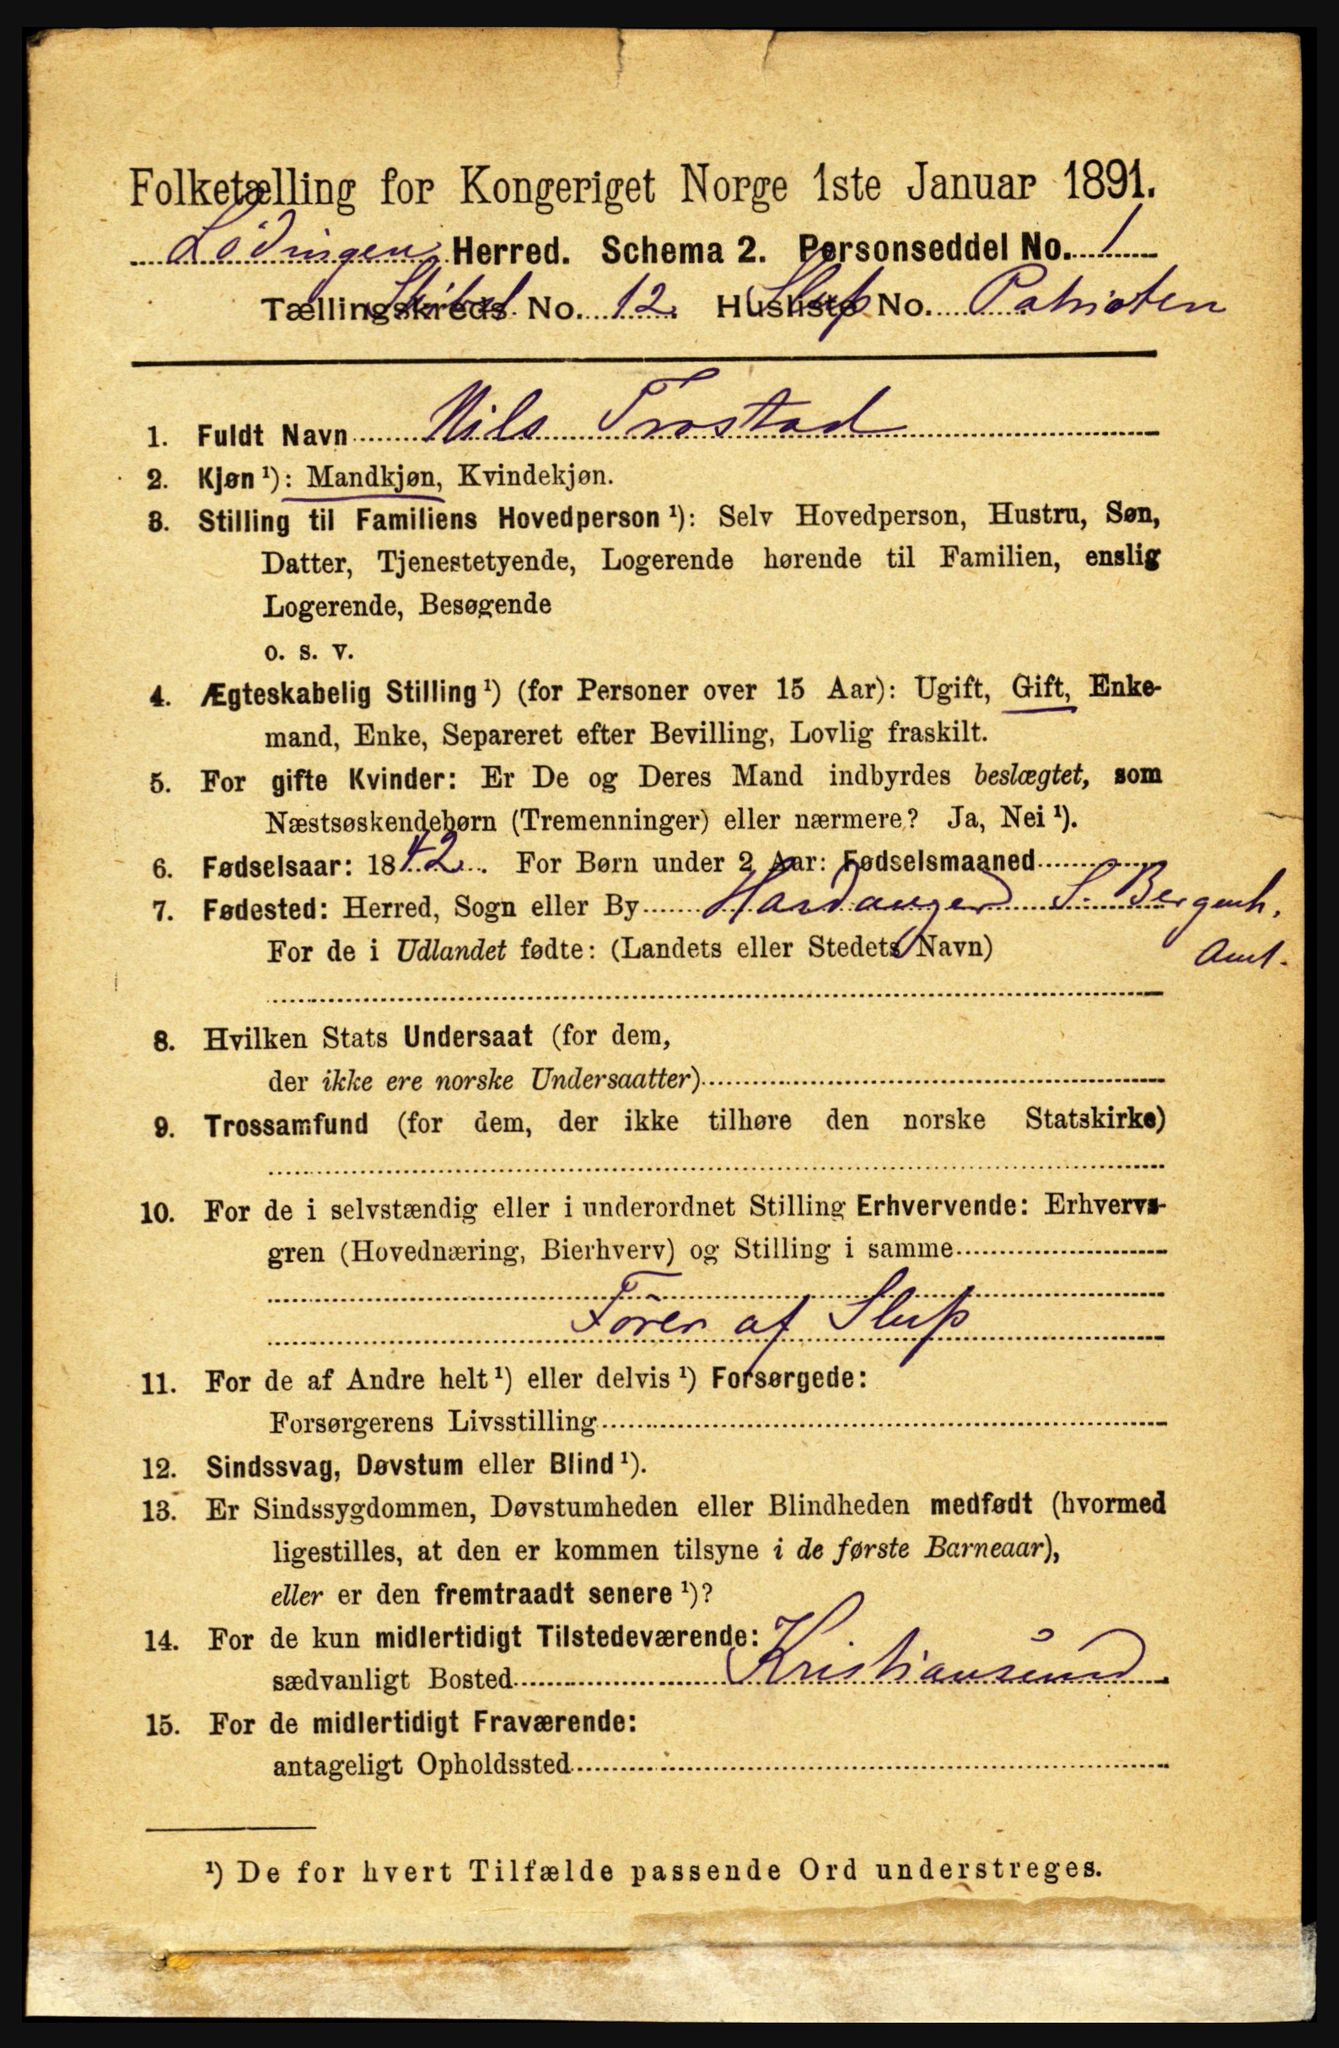 Folketælling for Kongeriget Norge 1ste Januar 1891.
Lödingen Herred. Schema 2. Personseddel No. 1
Tællingskreds No. 12. Husliste No. Slup Patrioten
1. Fuldt Navn Nils Trostad
2. Kjøn ¹): Mandkjøn, Kvindekjøn.
3. Stilling til Familiens Hovedperson ¹): Selv Hovedperson, Hustru, Søn,
Datter, Tjenestetyende, Logerende hørende til Familien, enslig
Logerende, Besøgende
o. s. v.
4. Ægteskabelig Stilling ¹) (for Personer over 15 Aar): Ugift, Gift, Enke-
mand, Enke, Separeret efter Bevilling, Lovlig fraskilt.
5. For gifte Kvinder: Er De og Deres Mand indbyrdes beslægtet, som
Næstsøskendebørn (Tremenninger) eller nærmere? Ja, Nei ¹).
6. Fødselsaar: 1842. For Børn under 2 Aar: Fødselsmaaned
7. Fødested: Herred, Sogn eller By Hardanger S. Bergenh.
For de i Udlandet fødte: (Landets eller Stedets Navn) Amt.
8. Hvilken Stats Undersaat (for dem,
der ikke ere norske Undersaatter)
9. Trossamfund (for dem, der ikke tilhøre den norske Statskirke)
10. For de i selvstændig eller i underordnet Stilling Erhvervende: Erhvervs-
gren (Hovednæring, Bierhverv) og Stilling i samme
Förer af Slup
11. For de af Andre helt ¹) eller delvis ¹) Forsørgede:
Forsørgerens Livsstilling
12. Sindssvag, Døvstum eller Blind ¹).
13. Er Sindssygdommen, Døvstumheden eller Blindheden medfødt (hvormed
ligestilles, at den er kommen tilsyne i de første Barneaar),
eller er den fremtraadt senere ¹)?
14. For de kun midlertidigt Tilstedeværende:
sædvanligt Bosted Kristiansund
15. For de midlertidigt Fraværende:
antageligt Opholdssted
¹) De for hvert Tilfælde passende Ord understreges.